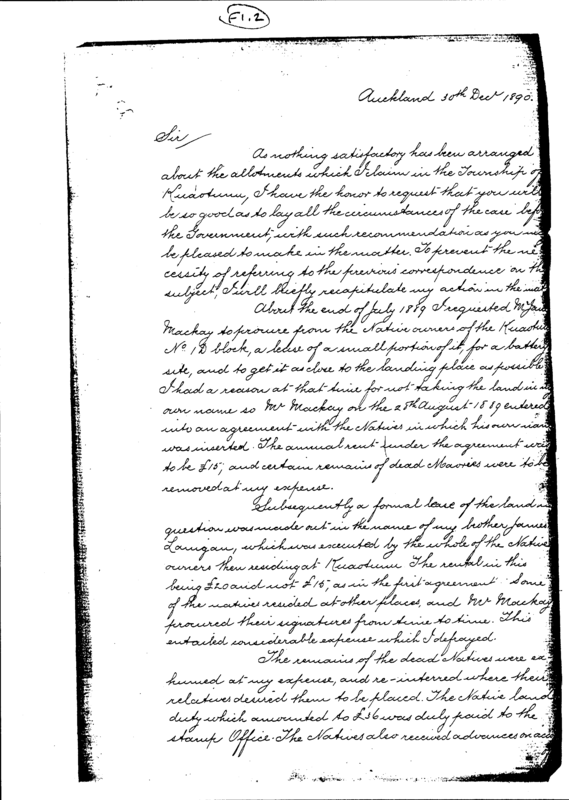 F1.2
Auckland 30th Decr 1890.
Sir
As nothing satisfactory has been arranged
about the allotments which I claim in the Township of
Kuaotunu, I have the honor to request that you will
be so good as to lay all the circumstances of the case bef
the Government, with such recommendation as you m
be pleased to make in the matter. To prevent the ne
cessity of referring to the previous correspondence on th
subject, I will briefly recapitulate my action in the mat
About the end of July 1889 I requested Mr Jam
Mackay to procure from the Native owners of the Kuaotu
No 1D block, a lease of a small portion of it, for a battery
site, and to get it as close to the landing place as possible
I had a reason at that time for not taking the land in m
own name so Mr Mackay on the 28th August 1889 entered
into an agreement with the Natives in which his own nam
was inserted. The annual rent under the agreement was
to be £15, and certain remains of dead Maories were to be
removed at my expense.
Subsequently a formal lease of the land in
question was made out in the name of my brother James
Lanigan, which was executed by the whole of the Native
owners then residing at Kuaotunu The rental in this
being £20 and not £15, as in the first agreement Some
of the natives resided at other places, and Mr Mackay
procured their signatures from time to time. This
entailed considerable expense which I defrayed.
The remains of the dead Natives were ex
humed at my expense, and re-interred where their
relatives desired them to be placed. The Native land
duty which amounted to £36 was duly paid to the
Stamp Office. The Natives also received advances on acc